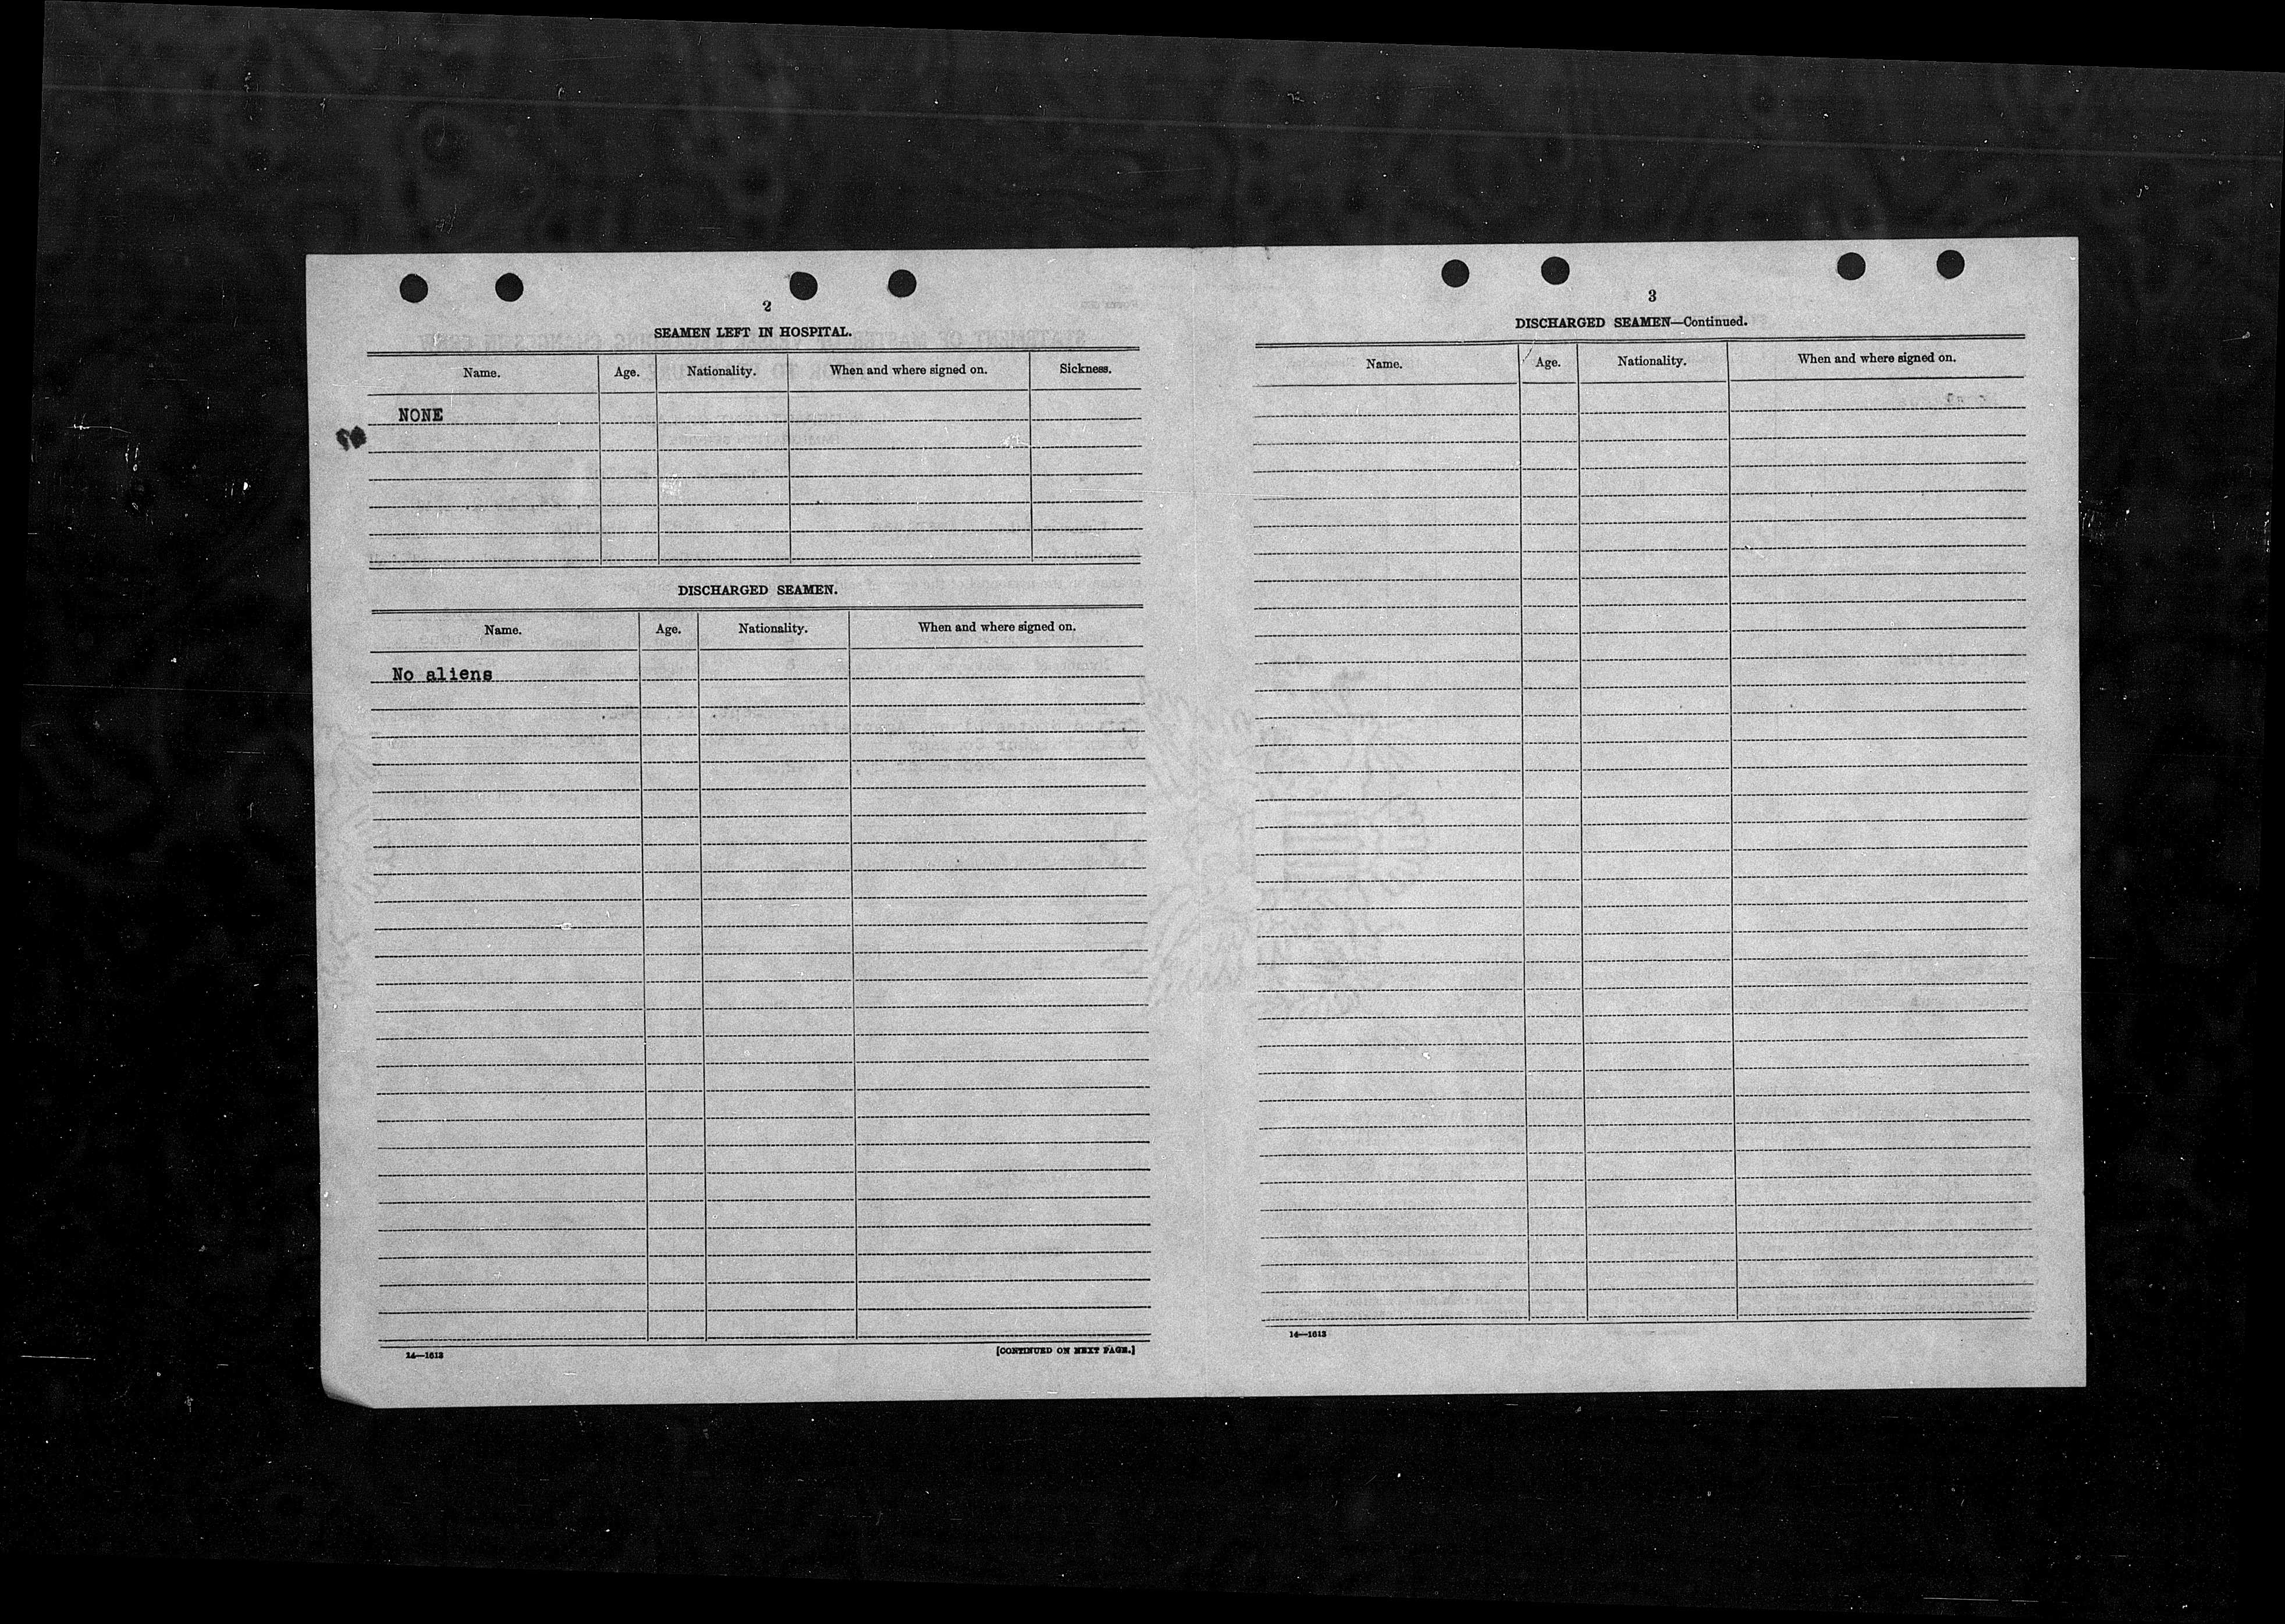 2
SEAMEN LEFT IN HOSPITAL.
Name. Age. Nationality. When and where signed on. Sickness.
NONE
DISCHARGED SEAMEN.
Name. Age. Nationality. When and where signed on.
No aliens
14—1613
[CONTINUED ON NEXT PAGE.]
3
DISCHARGED SEAMEN—Continued.
Name. Age. Nationality. When and where signed on.
14—1613